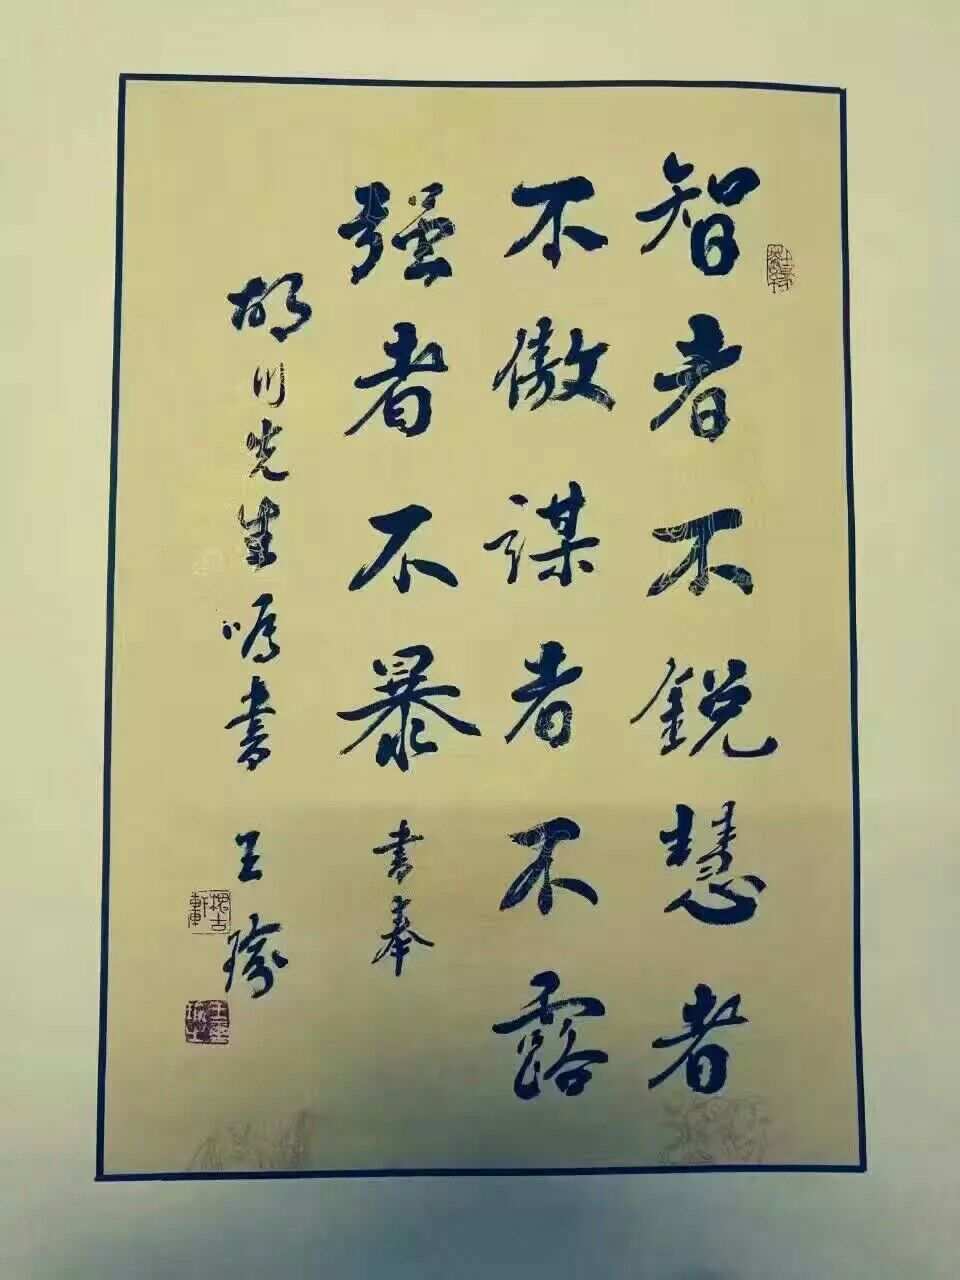 智者不锐慧者
不傲谋者不露
强者不暴书奉
胡川先生嘱书 王瑜
愧古軒